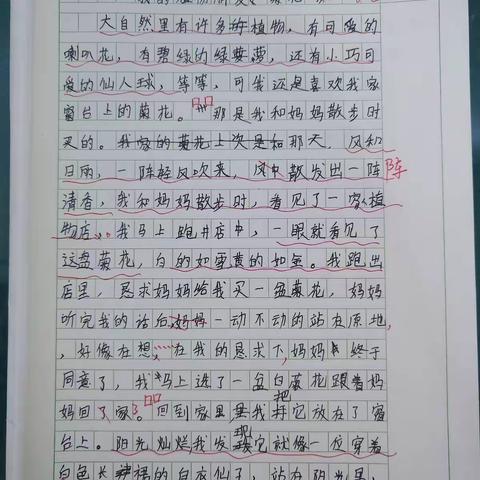 大自然里有许多的植物，有可爱的
喇叭花，有碧绿的绿萝，还有小巧可
爱的仙人球，等等，可我还是喜欢我家
窗台上的菊花。那是我和妈妈散步时
买的。那天，风和
日丽，一阵轻风吹来，风中散发出一阵阵
清香，我和妈妈散步时，看见了一家植
物店，我马上跑进店中，一眼就看见了
这盆菊花，白的如雪黄的如金。我跑出
店里，恳求妈妈给我买一盆菊花，妈妈
听完我的话后一动不动的站在原地，
好像在想……在我的恳求下，妈妈终于
同意了，我马上选了一盆白菊花跟着妈
妈回了家。回到家里，我把它放在了窗
台上。阳光灿烂，我发现它就像一位穿着
白色长裙的白衣仙子，站在阳光里，